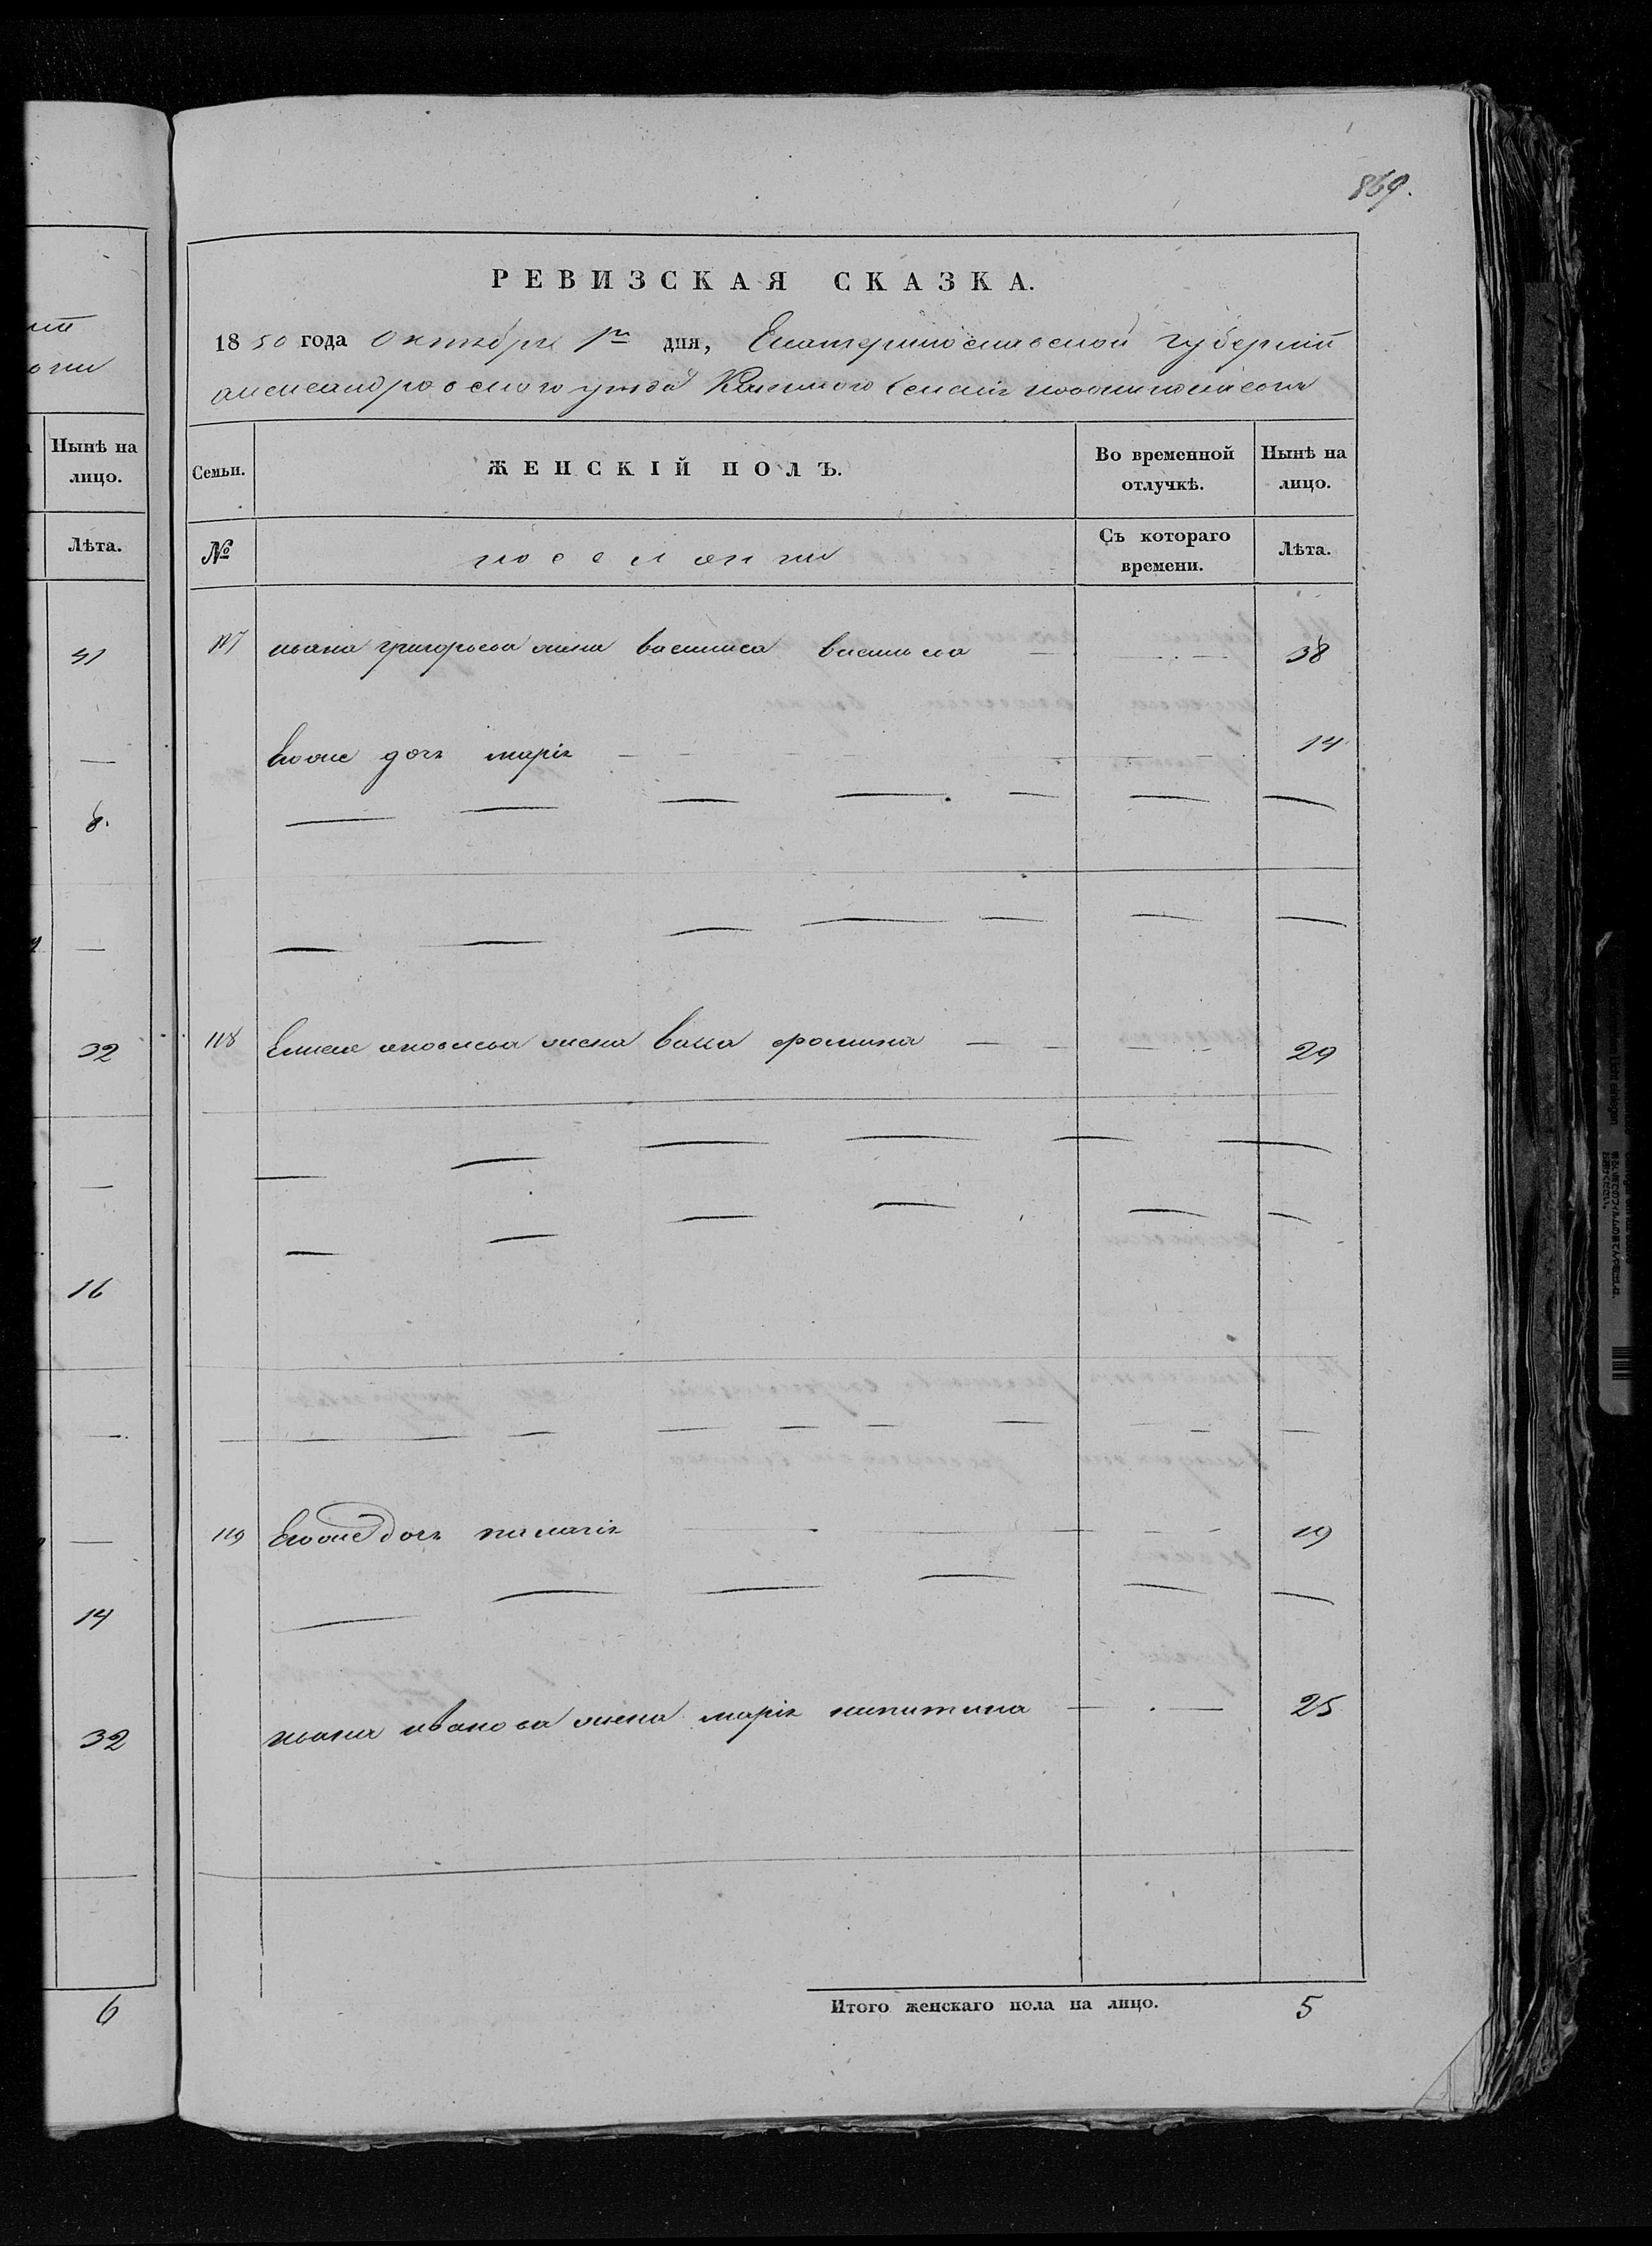 869.
РЕВИЗСКАЯ СКАЗКА.
1850 года Октября 1го дня, Екатеринославской губернии
александровского уезда Казенного селения
Нынѣ на лицо.
Лѣта.
41
—
8.
—
32
—
16
—
—
14
32
6
Семьи.
ЖЕНСКІЙ ПОЛЪ.
Во временной отлучкѣ.
Нынѣ на лицо.
№
поселянки
Съ котораго времени.
Лѣта.
117 ивана григорьева жена василиса васильева 38
Егоже дочь марія 14
118 Елисея яковлева жена фомина 29
119 Егоже дочь 19
ивана иванова жена марія никитина 25
Итого женскаго пола на лицо. 5